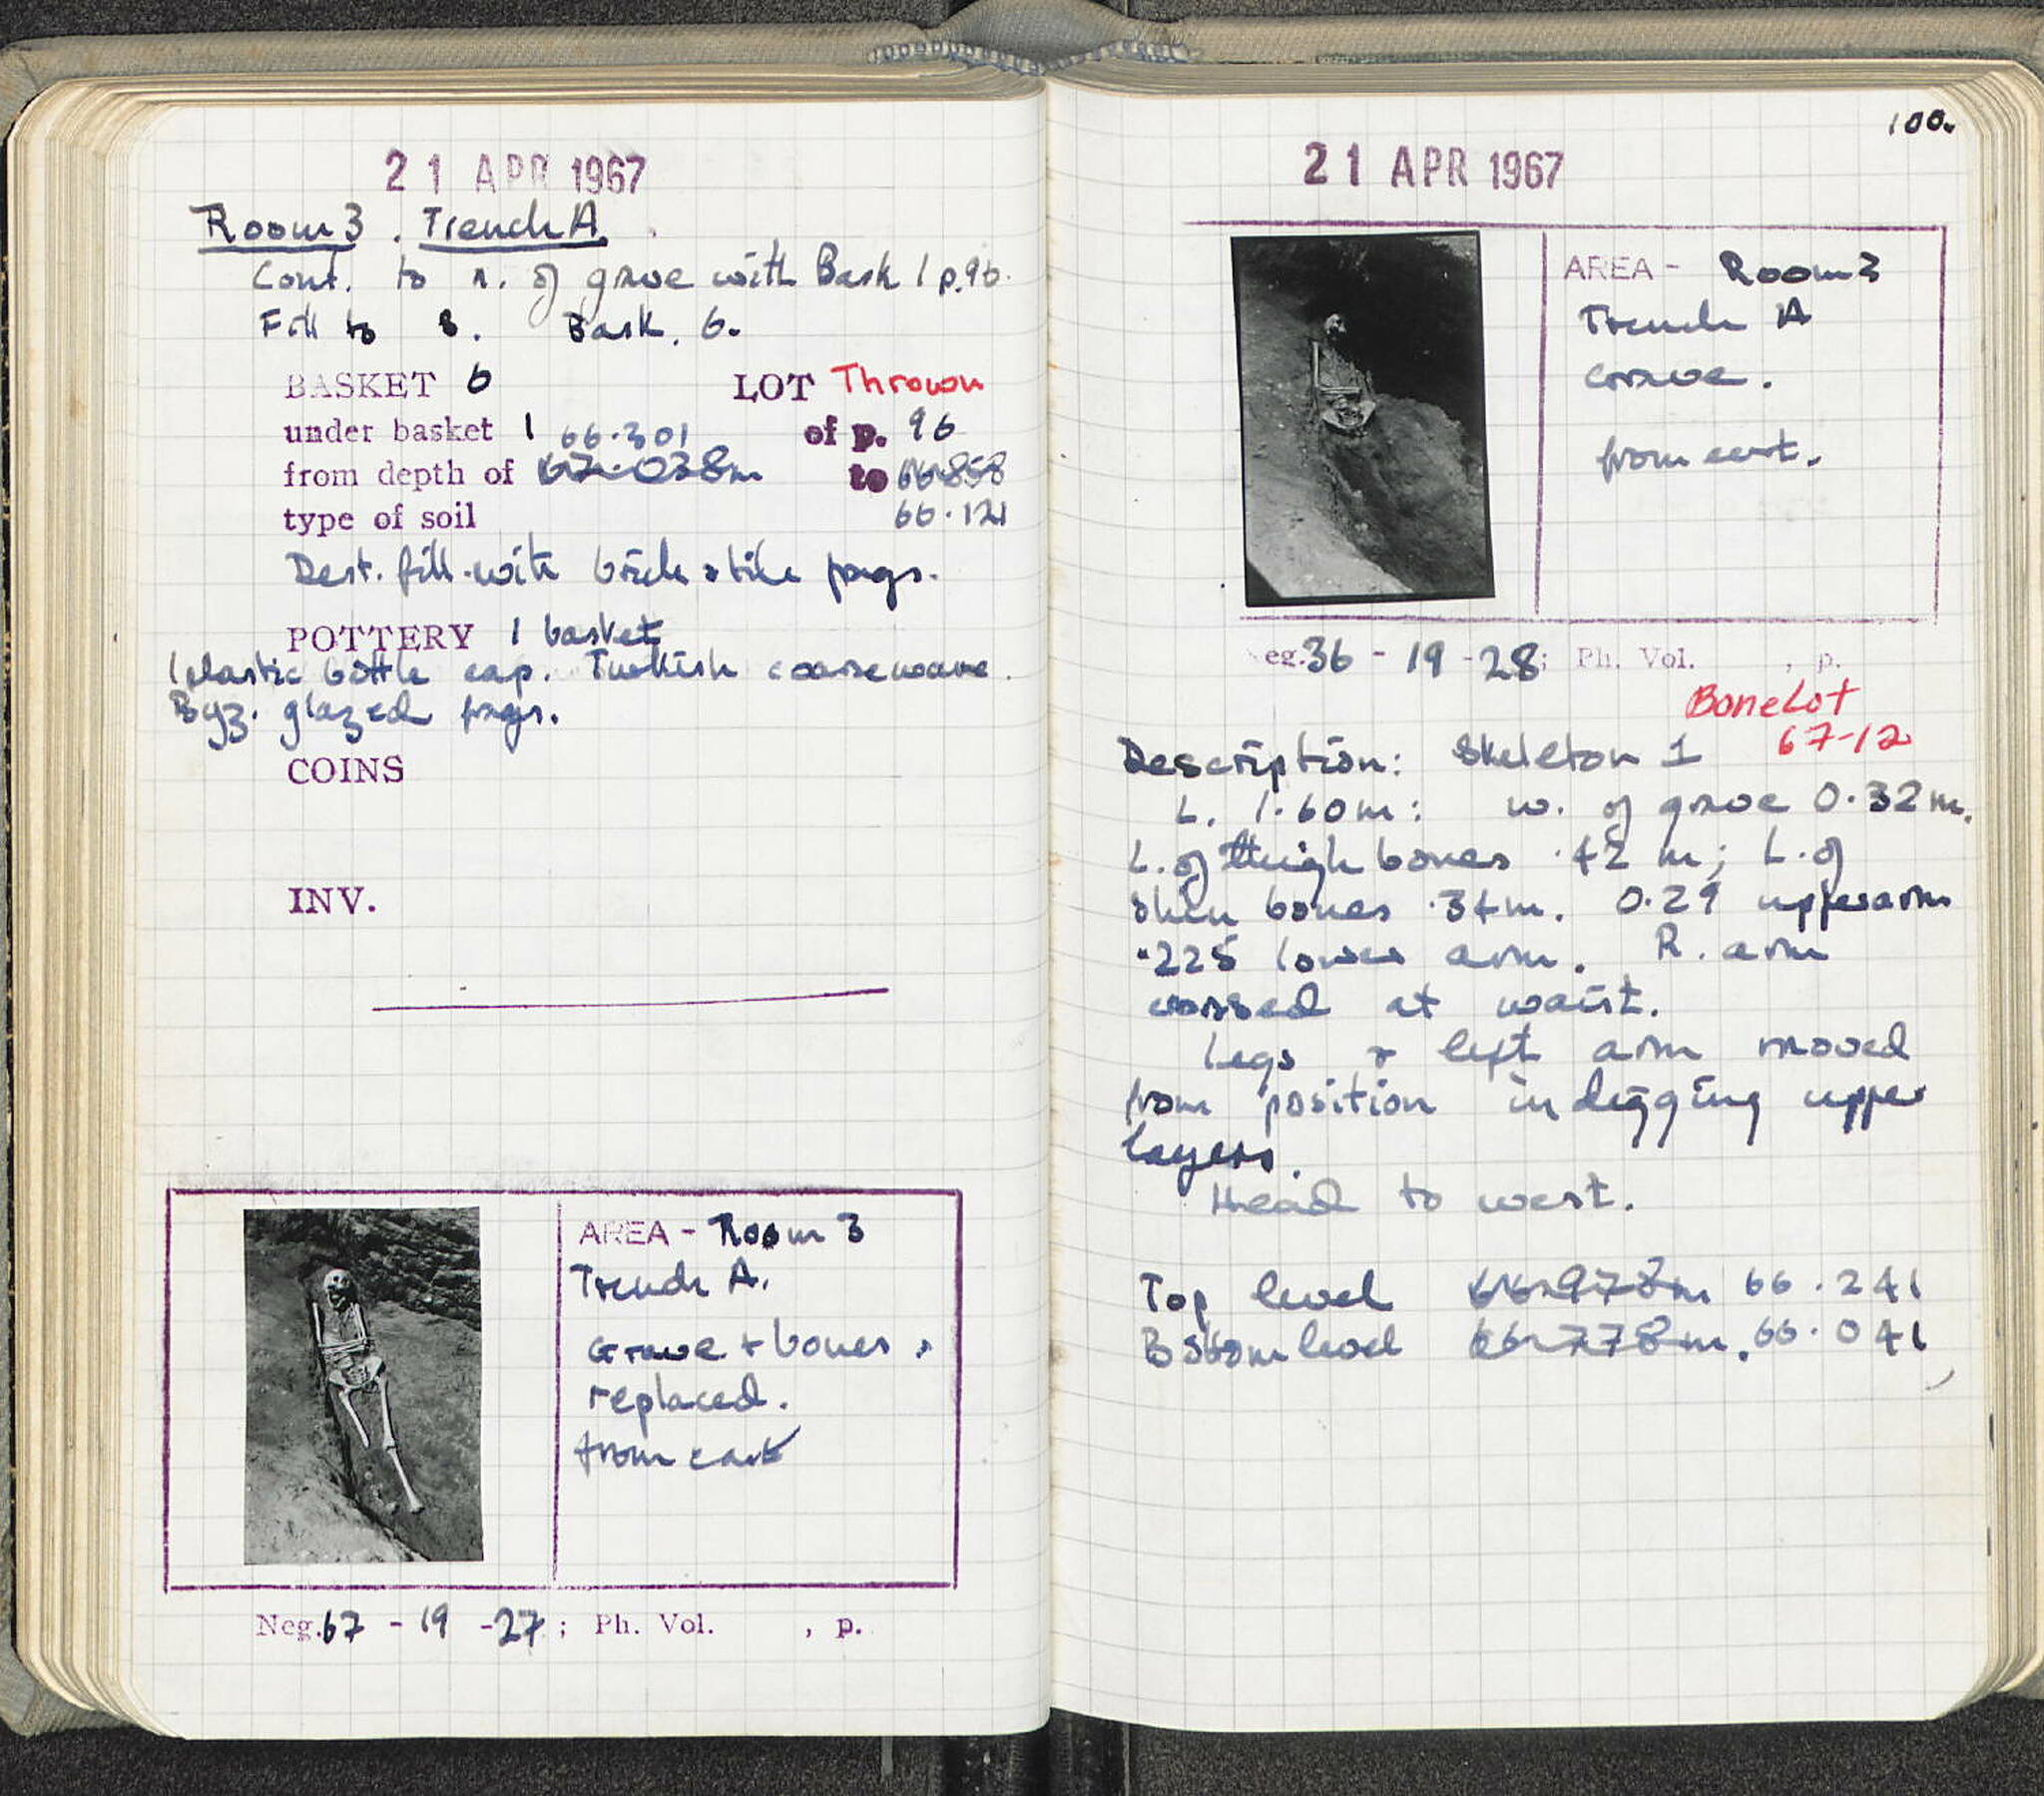 21 APR 1967
Room 3. Trench A.
Cont. to n. of grave with Bask 1 p.96.
Fill to s. Bask. 6.
BASKET 6 LOT Thrown
under basket 1 of p. 96
66.301
from depth of 67.038m to 66.858
type of soil 66.121
Dest. fill with brick & tile frags.
POTTERY 1 basket
1 plastic bottle cap. Turkish coarseware.
Byz. glazed frags.
COINS
INV.
AREA - Room 3
Trench A.
Grave + bones
replaced.
from east
Neg. 67 - 19 - 27; Ph. Vol. , p.
100.
21 APR 1967
AREA - Room 3
Trench A
Grave.
from east.
eg. 36 - 19 - 28; Ph. Vol. , p.
Bone Lot
67-12
Description: Skeleton 1
L. 1.60m: w. of grave 0.32m.
L. of thigh bones .42 m; L. of
shin bones .34m. 0.29 upper arm
.225 lower arm. R. arm
crossed at waist.
Legs & left arm moved
from position in digging upper
layers.
Head to west.
Top level 66.978m 66.241
Bottom level 66.778m. 66.041